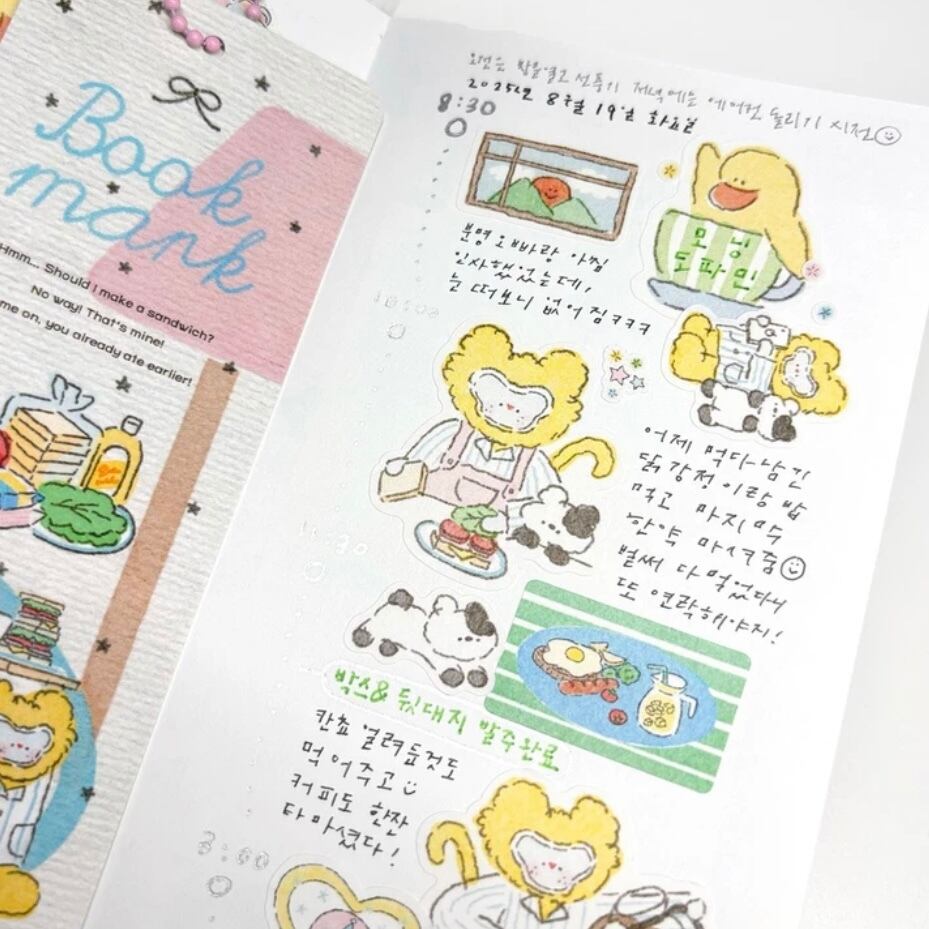 Book
mark
Hmm... Should I make a sandwich?
No way! That's mine!
me on, you already ate earlier!
오전은 창문열고 선풍기 저녁에는 에어컨 돌리기 시전
2025년 8월 19일 화요일
8:30
모닝
도파민
분명 오빠랑 아침
인사했었는데,
눈 떠보니 없어짐ㅋㅋㅋ
10:00
어제 먹다남긴
닭강정이랑 밥
먹고 마지막
한약 마셔줌
벌써 다먹었다니
또 연락해야지!
11:30
박스& 뒷대지 발주완료
칸쵸 얼려둔것도
먹어주고
커피도 한잔
타마셨다!
3:00